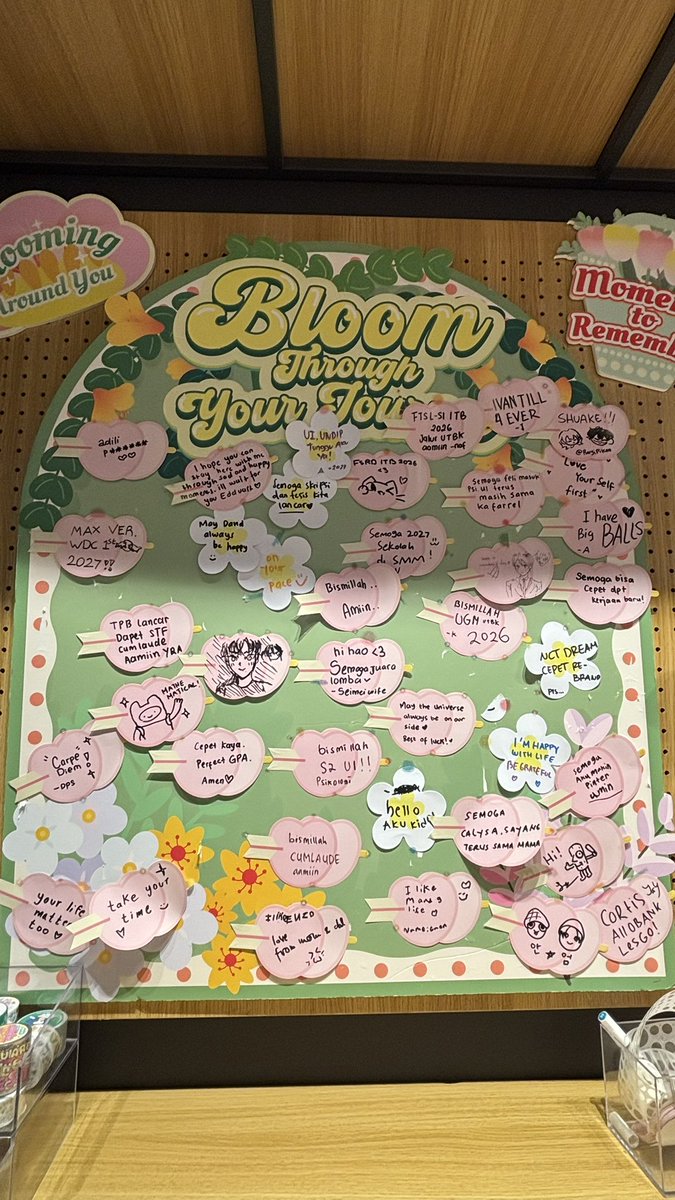 Blooming
Around You
Bloom
Through
Your Jour
Momen
to
Rememb
adili
P*******
I hope you can
stay here with me
through sad and happy
moments. I'll wait for
you Edduard
UI, UNDIP
Tunggu Aku
Ya!
-2027
FTSL-SI ITB
2026
Jalur UTBK
aamiin -naf
IVANTILL
4 EVER
-1
SHUAKE!!
Love
Your Self
first
FSRD ITB 2026
<3
Semoga skripsi
dan tesis kita
lancar
Semoga feli masuk
Psi UI terus
masih sama
ka farrel
I have
Big BALLS
-A
MAX VER.
WDC 1st
2027!!
May Dand
always
be happy
on
your
pace
Semoga 2027
Sekolah
di SMM!
Bismillah
Amiin..
Semoga bisa
Cepet dpt
kerjaan baru!
TPB lancar
Dapet STF
Cumlaude
Aamiin YRA
hi hao <3
Semoga juara
lomba
- Seimei wife
BISMILLAH
UGM UTBK
-K 2026
NCT DREAM
CEPET RE-
BRAND
PLS...
MATHE
MATICAL
May the universe
always be on our
side
Best of luck!
"Carpe
Diem"
-DPS
Cepet kaya.
Perfect GPA.
Amen
bismillah
S2 UI!!
Psikologi
I'M HAPPY
WITH LIFE
BE GRATEFUL
semoga
Ana makin
pinter
hello
AKU kidf
SEMOGA
CALYSA, SAYANG
TERUS SAMA MAMA
bismillah
CUMLAUDE
aamiin
Hi!
your life
matter
too
take your
time
love
from
I like
Mang
like
CORTIS
AlloBANK
LesGO!